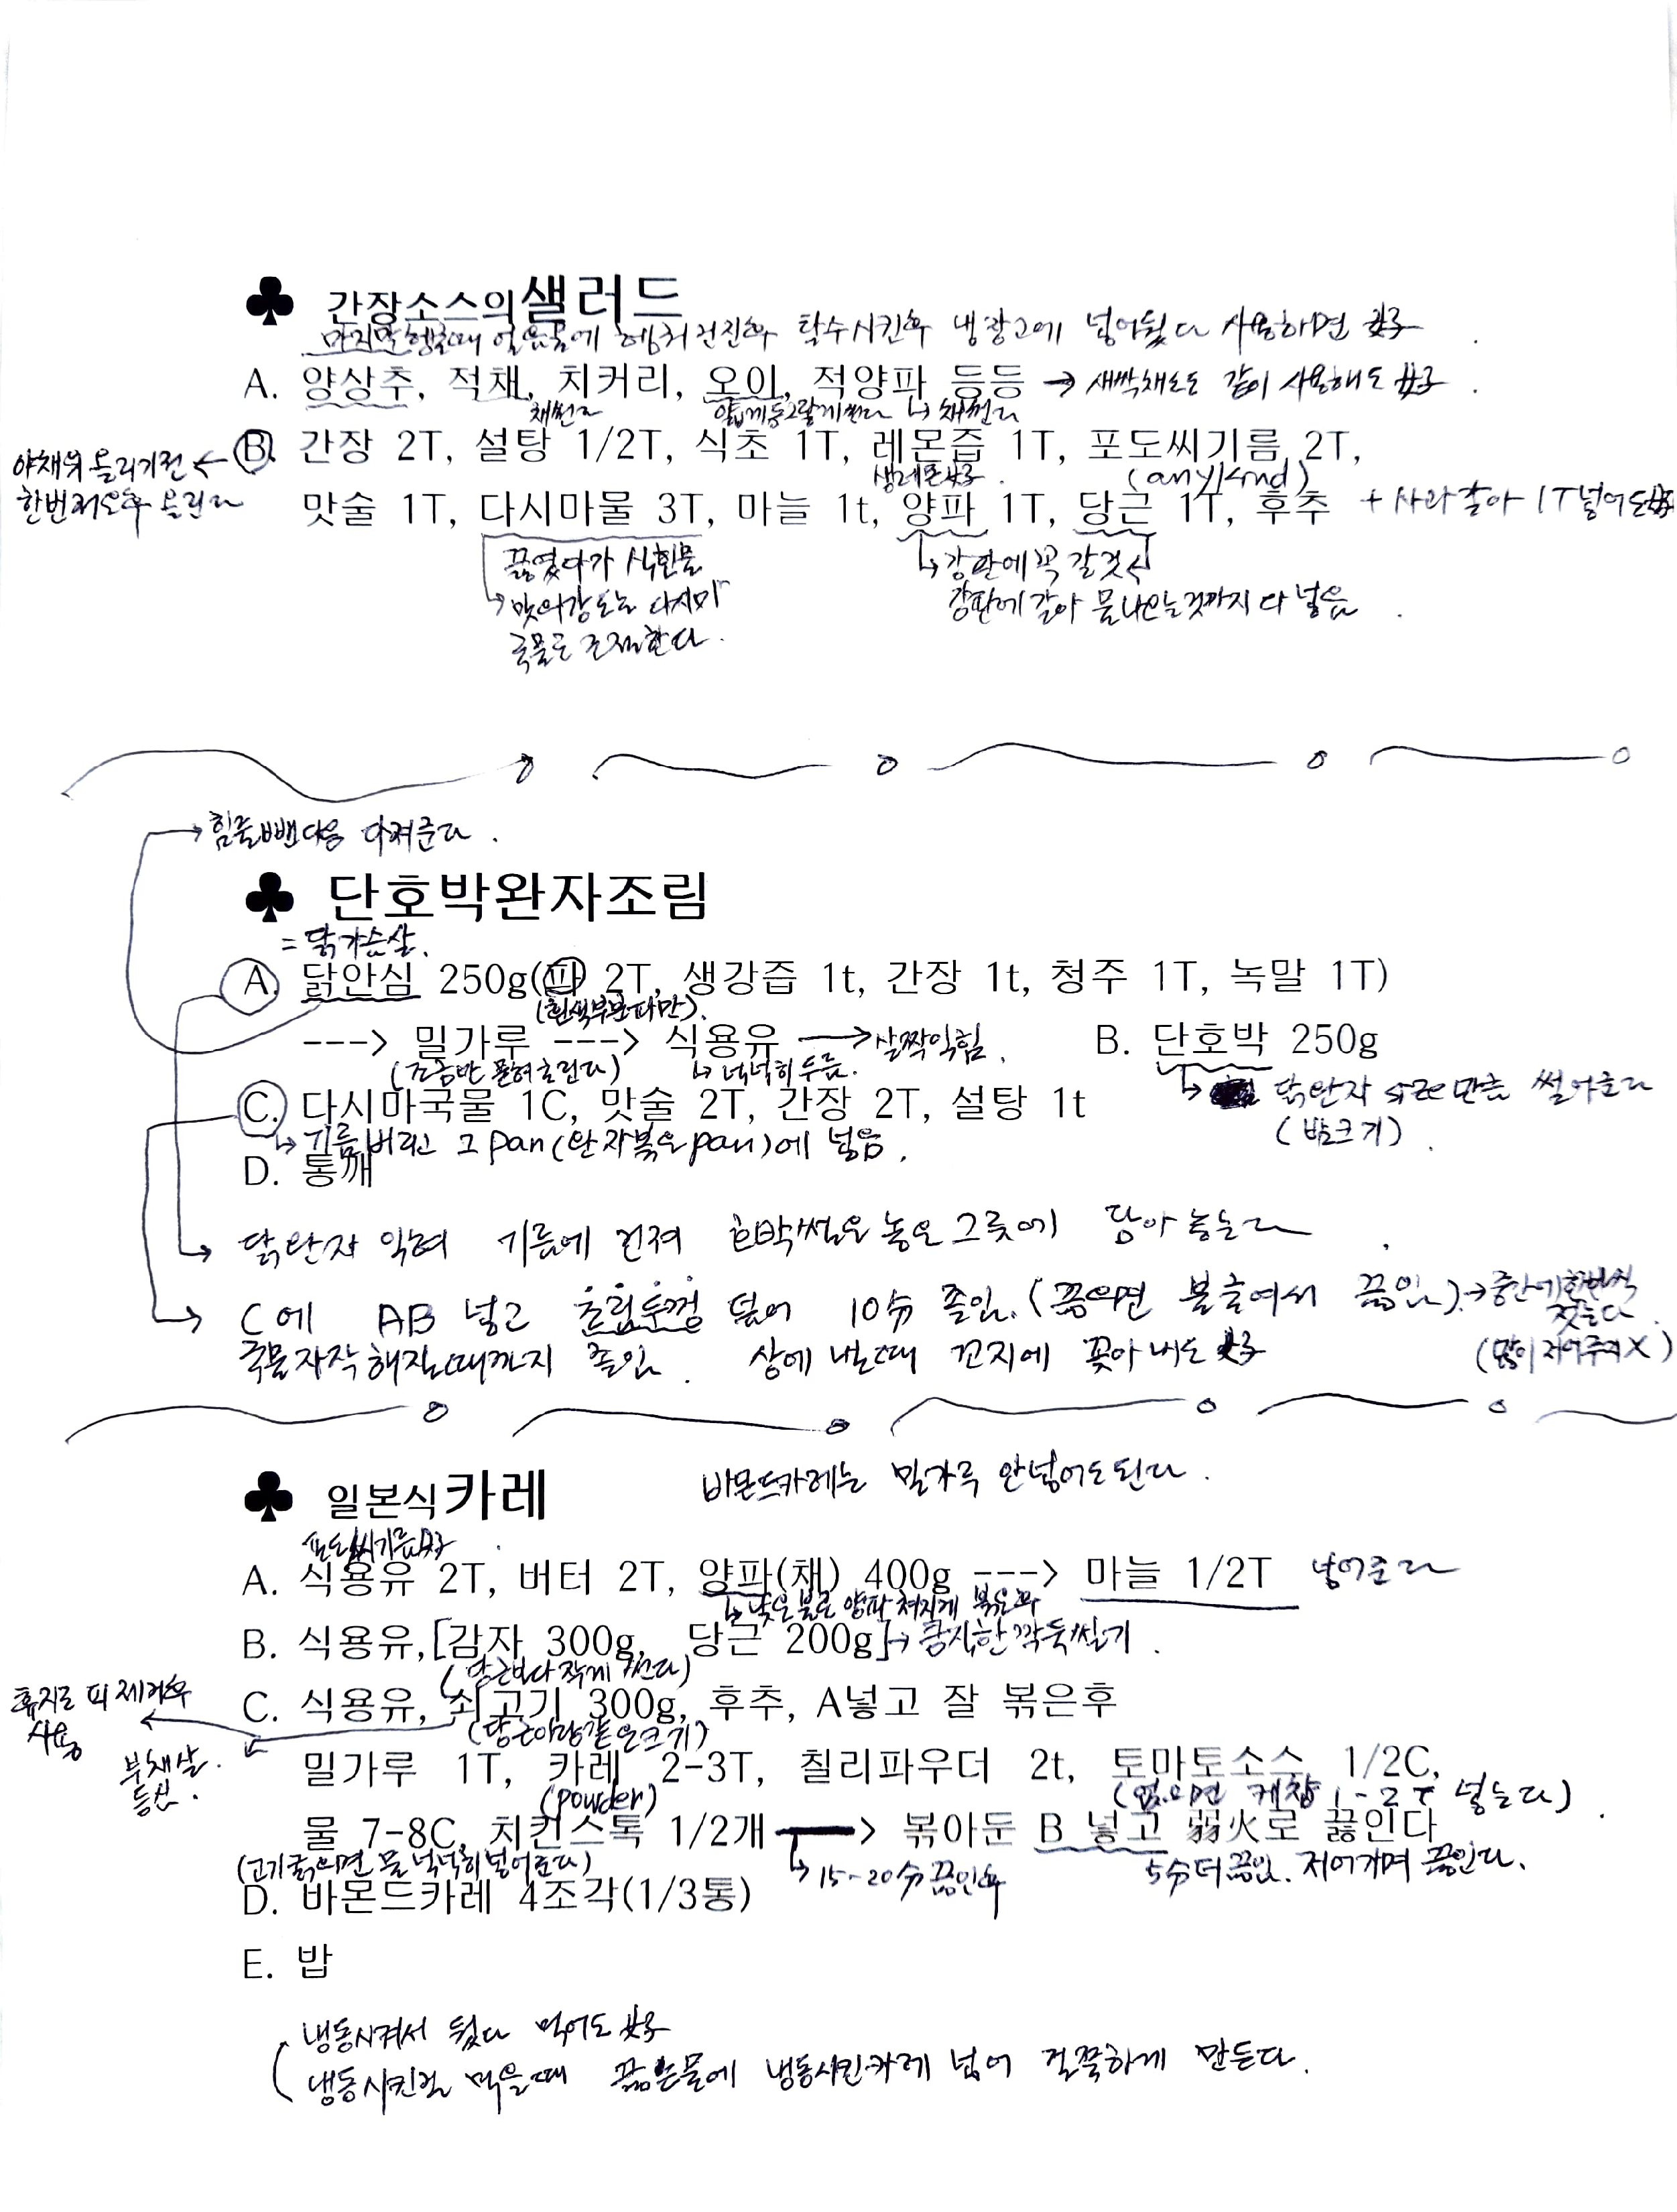 ♣ 간장소스의샐러드
마지막헹굴때 얼음물에 헹궈 건진후 탈수시킨후 냉장고에 넣어뒀다 사용하면 好
A. 양상추, 적채, 치커리, 오이, 적양파 등등 → 새싹채소도 같이 사용해도 好.
채썬다 얇게동그랗게썬다 ↳ 채썬다
B. 간장 2T, 설탕 1/2T, 식초 1T, 레몬즙 1T, 포도씨기름 2T,
야채위 올리기전 ←
한번저은후 올린다
생레몬好. (any kind)
맛술 1T, 다시마물 3T, 마늘 1t, 양파 1T, 당근 1T, 후추 + 사과 갈아 1T넣어도好
끓였다가 식힌물 ↳ 강판에 꼭 갈것
→ 맛의강도는 다시마 강판에 갈아 물나오는것까지 다 넣음.
국물로 조절한다.
→ 힘줄뺀다음 다져준다.
♣ 단호박완자조림
= 닭가슴살.
A. 닭안심 250g(파 2T, 생강즙 1t, 간장 1t, 청주 1T, 녹말 1T)
(흰색부분파만).
---> 밀가루 ---> 식용유 → 살짝익힘. B. 단호박 250g
(조금만 묻혀굴린다) ↳ 넉넉히 두름. ↳ 닭완자 size만큼 썰어준다
(밤크기).
C. 다시마국물 1C, 맛술 2T, 간장 2T, 설탕 1t
↳ 기름버리고 그 pan(완자볶은pan)에 넣음.
D. 통깨
→ 닭완자 익혀 기름에 건져 호박썰은 놓은 그릇에 담아 놓는다.
→ C에 AB 넣고 호일뚜껑 덮어 10分 졸임. (끓으면 불줄여서 끓임). → 중간에 한번씩
젓는다.
국물자작해질때까지 졸임. 상에 낼때 꼬지에 꽂아 내도 好 (많이 저어주지X)
♣ 일본식카레 바몬드카레는 밀가루 안넣어도된다.
포도씨기름好.
A. 식용유 2T, 버터 2T, 양파(채) 400g ---> 마늘 1/2T 넣어준다
↳ 낮은불로 양파 쳐지게 볶은후
B. 식용유,[감자 300g, 당근 200g] → 큼지막한 깍둑썰기.
(당근보다 작게 썬다)
휴지로 피 제거후
사용
C. 식용유, 쇠고기 300g, 후추, A넣고 잘 볶은후
(당근이랑같은크기)
부채살.
등심.
밀가루 1T, 카레 2-3T, 칠리파우더 2t, 토마토소스 1/2C,
(powder) (없으면 케찹 1-2T 넣는다).
물 7-8C, 치킨스톡 1/2개 ---> 볶아둔 B 넣고 弱火로 끓인다
(고기굵으면 물 넉넉히넣어준다) ↳ 15-20分 끓인후 5分더끓임. 저어가며 끓인다.
D. 바몬드카레 4조각(1/3통)
E. 밥
냉동시켜서 뒀다 먹어도 好
냉동시킨걸 먹을때 끓는물에 냉동시킨카레 넣어 걸쭉하게 만든다.